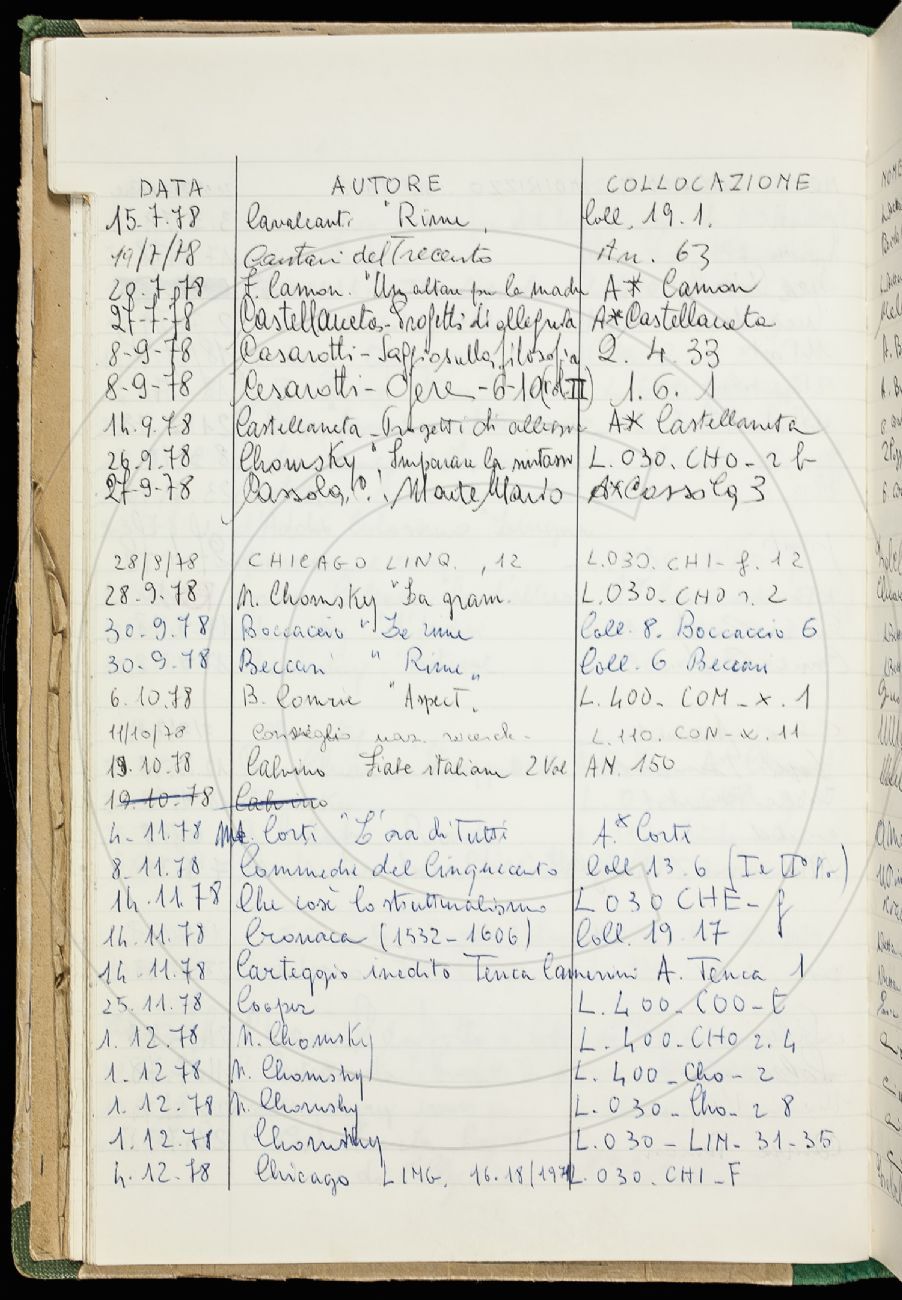 DATA AUTORE COLLOCAZIONE
15.7.78 Cavalcanti "Rime" Coll. 19.1.
19/7/78 Cantari del Trecento An. 63
28.7.78 F. Camon. "Un altare per la madre A* Camon
27-7-78 Castellaneta - Progetti di allegria A* Castellaneta
8-9-78 Cesarotti - Saggio sulla filosofia 2. 4. 33
8-9-78 Cesarotti - Opere - 6-10 (vol. II) 1. 6. 1
14.9.78 Castellaneta - Progetti di allegria A* Castellaneta
26.9.78 Chomsky, Imparare la sintassi L. 030. CHO - 2 b
27-9-78 Cassola, Monte Mario A* Cassola 3
28/8/78 CHICAGO LINQ., 12 L.030. CHI - f. 12
28.9.78 N. Chomsky "La gram. L.030. CHO r. 2
30.9.78 Boccaccio "Le rime Coll. 8. Boccaccio 6
30.9.78 Beccari "Rime" Coll. 6 Beccari
6.10.78 B. Comrie "Aspect" L. 400. COM - x. 1
11/10/78 Consiglio naz. ricerch. L. 110. CON - x. 11
19.10.78 Calvino Fiabe italiane 2 Vol AN. 150
19.10.78 Calvino
4.11.78 M. Corti "L'ora di Tutti A.* Corti
8.11.78 Commedie del Cinquecento Coll 13.6 (I e II°)
14.11.78 Che cosè lo strutturalismo L 030 CHE - f
14.11.78 Cronaca (1532-1606) Coll. 19 17
14.11.78 Carteggio inedito Tenca Camerini A. Tenca 1
25.11.78 Cooper L. 400. COO - E
1.12.78 N. Chomsky L. 400 - CHO 2. 4
1.12 78 N. Chomsky L. 400 - Cho - 2
1.12.78 N. Chomsky L. 030 - Cho - 2 8
1.12.78 Chomsky L.030 - LIN - 31-35
4.12.78 Chicago LING. 16.18/197 L.030. CHI - F